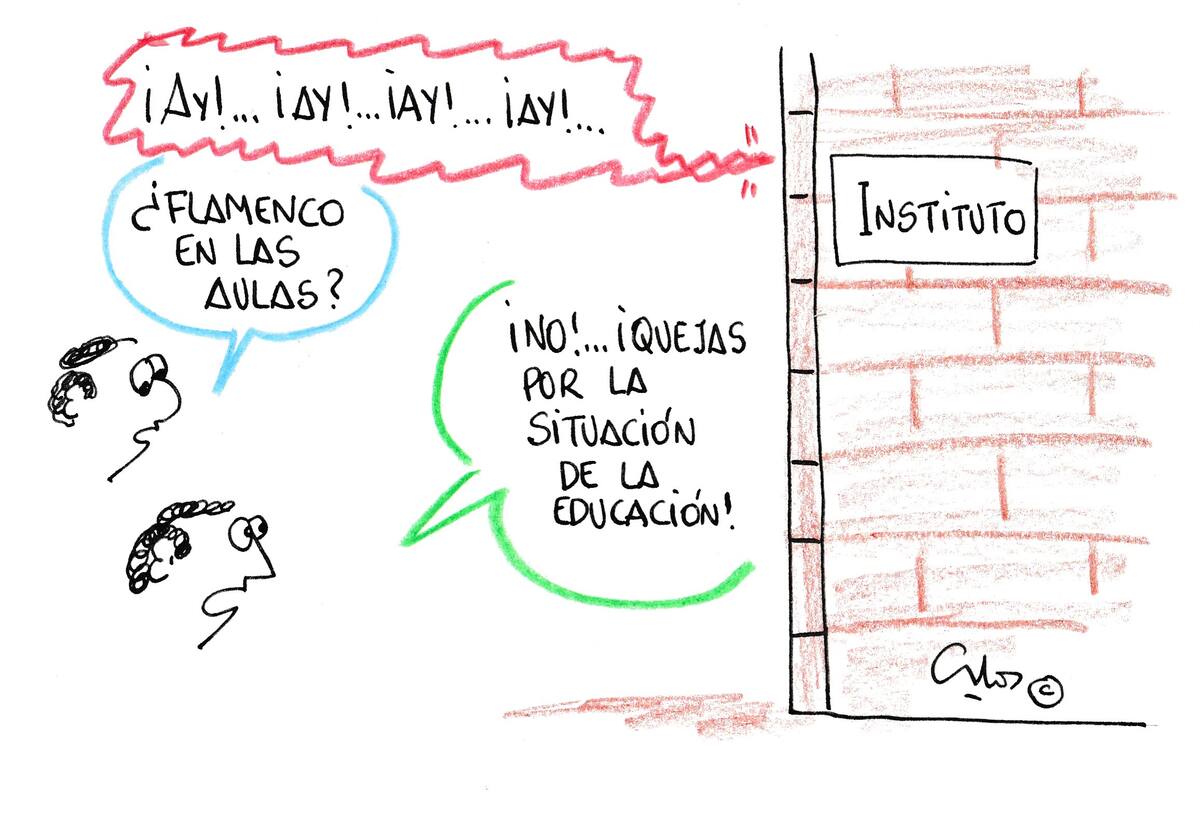 ¡AY!... ¡AY!... ¡AY!... ¡AY!....
¿FLAMENCO
EN LAS
AULAS?
INSTITUTO
¡NO!... ¡QUEJAS
POR LA
SITUACIÓN
DE LA
EDUCACIÓN!
©